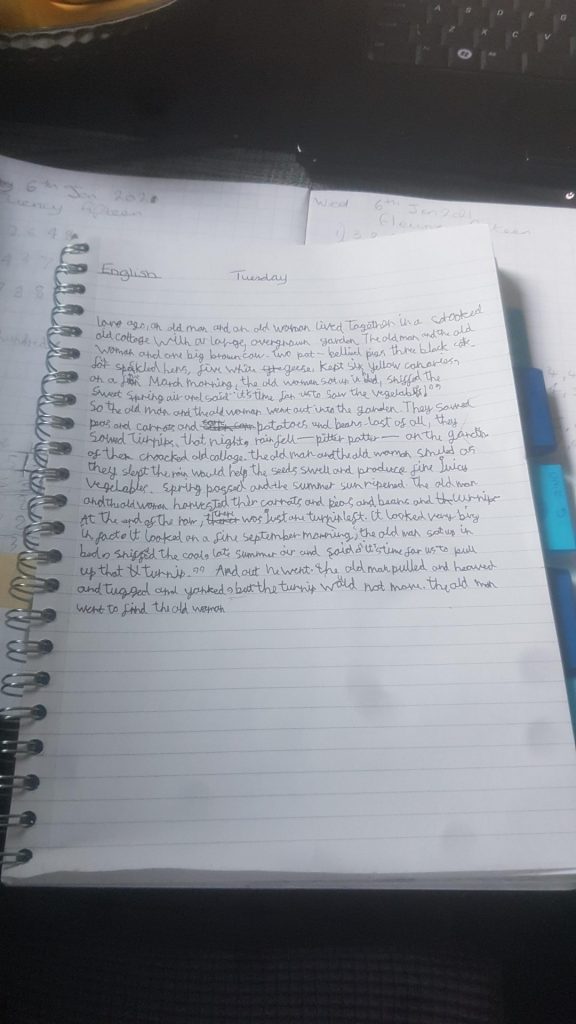 6th Jan 2021
Wed 6th Jan 2021
English Tuesday
long ago, an old man and an old woman lived Togother in a crooked
old cottage with a large, overgrown garden. The old man and the old
woman and one big brown cow. Two pot-bellied pigs three black cats
fat speckled hens, five white geese. Kept six yellow canaries,
on a fin March morning, the old women sat up in bed, sniffed the
Sweet spring air and said "it's time for us to sow the vegetables"
So the old man and the old woman went out into the garden. They sowed
peas and carrots and potatoes and beans last of all, they
sowed turnips, that night, rain fell — pitter patter — on the garden
of them croocked old collage. the old man and the old woman smiled as
they slept the rain would help the seeds swell and produce fine juicy
Vegetables. Spring passed and the summer sun ripened The old man
and the old woman harvested thier carrots and peas and beans and the turnips
At the end of the row, there was just one turnip left. it looked very big
in fact it looked on a fine september morning, the old man sat up in
bed, sniffed the cool, late summer air and said "it's time for us to pull
up that turnip." And out he went. the old man pulled and heaved
and tugged and yanked, but the turnip would not move. the old man
went to find the old woman